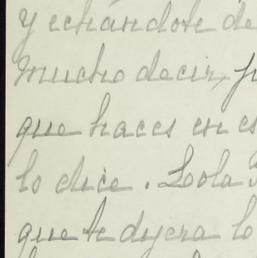 y echándote de
mucho decir,
que haces en es
lo dice. Lola
que te dijera lo